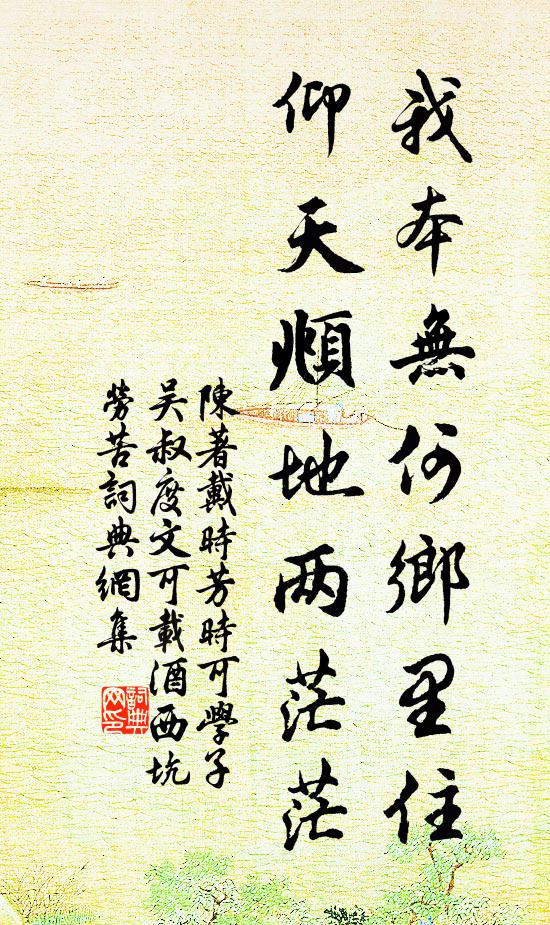 我本無何鄉里住
仰天頫地两茫茫
陳著戴時芳時可學子
吴叔度文可載酒西坑
勞苦詞典網集
詞典网印